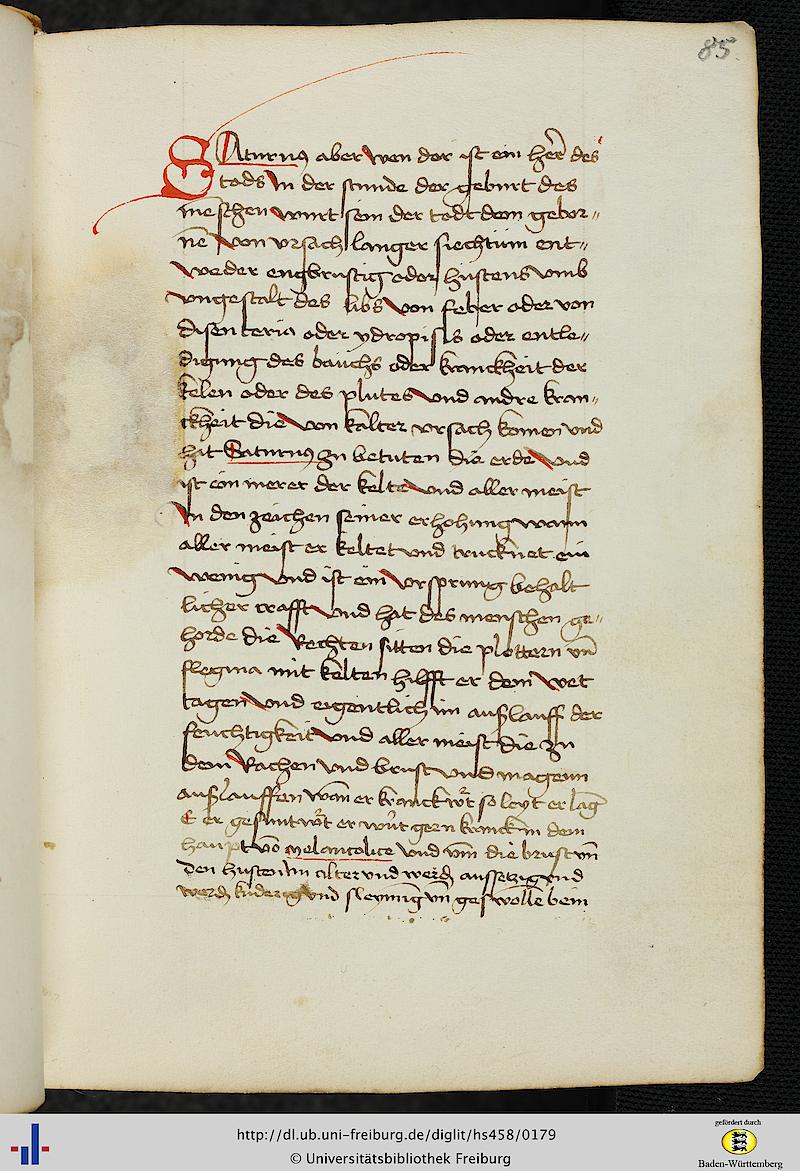 85
Saturnus aber wen der ist ein her̄ des
tods Jn der stunde der geburt des
menschen wurt sein der todt dem gebor„
nē von vrsach langer siechtům ent„
weder engbrustig oder hůstens vmb
vngestalt des libs von feber oder von
disenteria oder ydropisis oder entle„
digung des bauchs oder kranckheit der
kelen oder des plutes vnd andre kran„
ckheit die von kalter vrsach komen vnd
hat Saturnus zu betuten die erde vnd
ist ein merer der kelte vnd aller meist
Jn den zeichen seiner erhohung wann
aller meist er keltet vnd trucknet ein
wenig vnd ist ein vrsprung behalt
licher crafft vnd hat des menschen ge„
horde die Rechten sitten die plottern vn̄
flegma mit kelten hilfft er dem wet
tagen vnd eigentlich im außlauff der
feuchtigkeit vnd aller meist die zu
dem Rachen vnd brust vnd magenn
außlauffen wān er kranck wirt so leyt er lāg
E er gesunt wirt er wirt gern kranck in dem
haupt vō melancolice vnd vm̄ die brust vn̄
den husten im alter vnd werdē aussetzig vnd
vnd sleymig vn̄ geswolle bein
http://dl.ub.uni-freiburg.de/diglit/hs458/0179
© Universitätsbibliothek Freiburg
gefördert durch
Baden-Württemberg